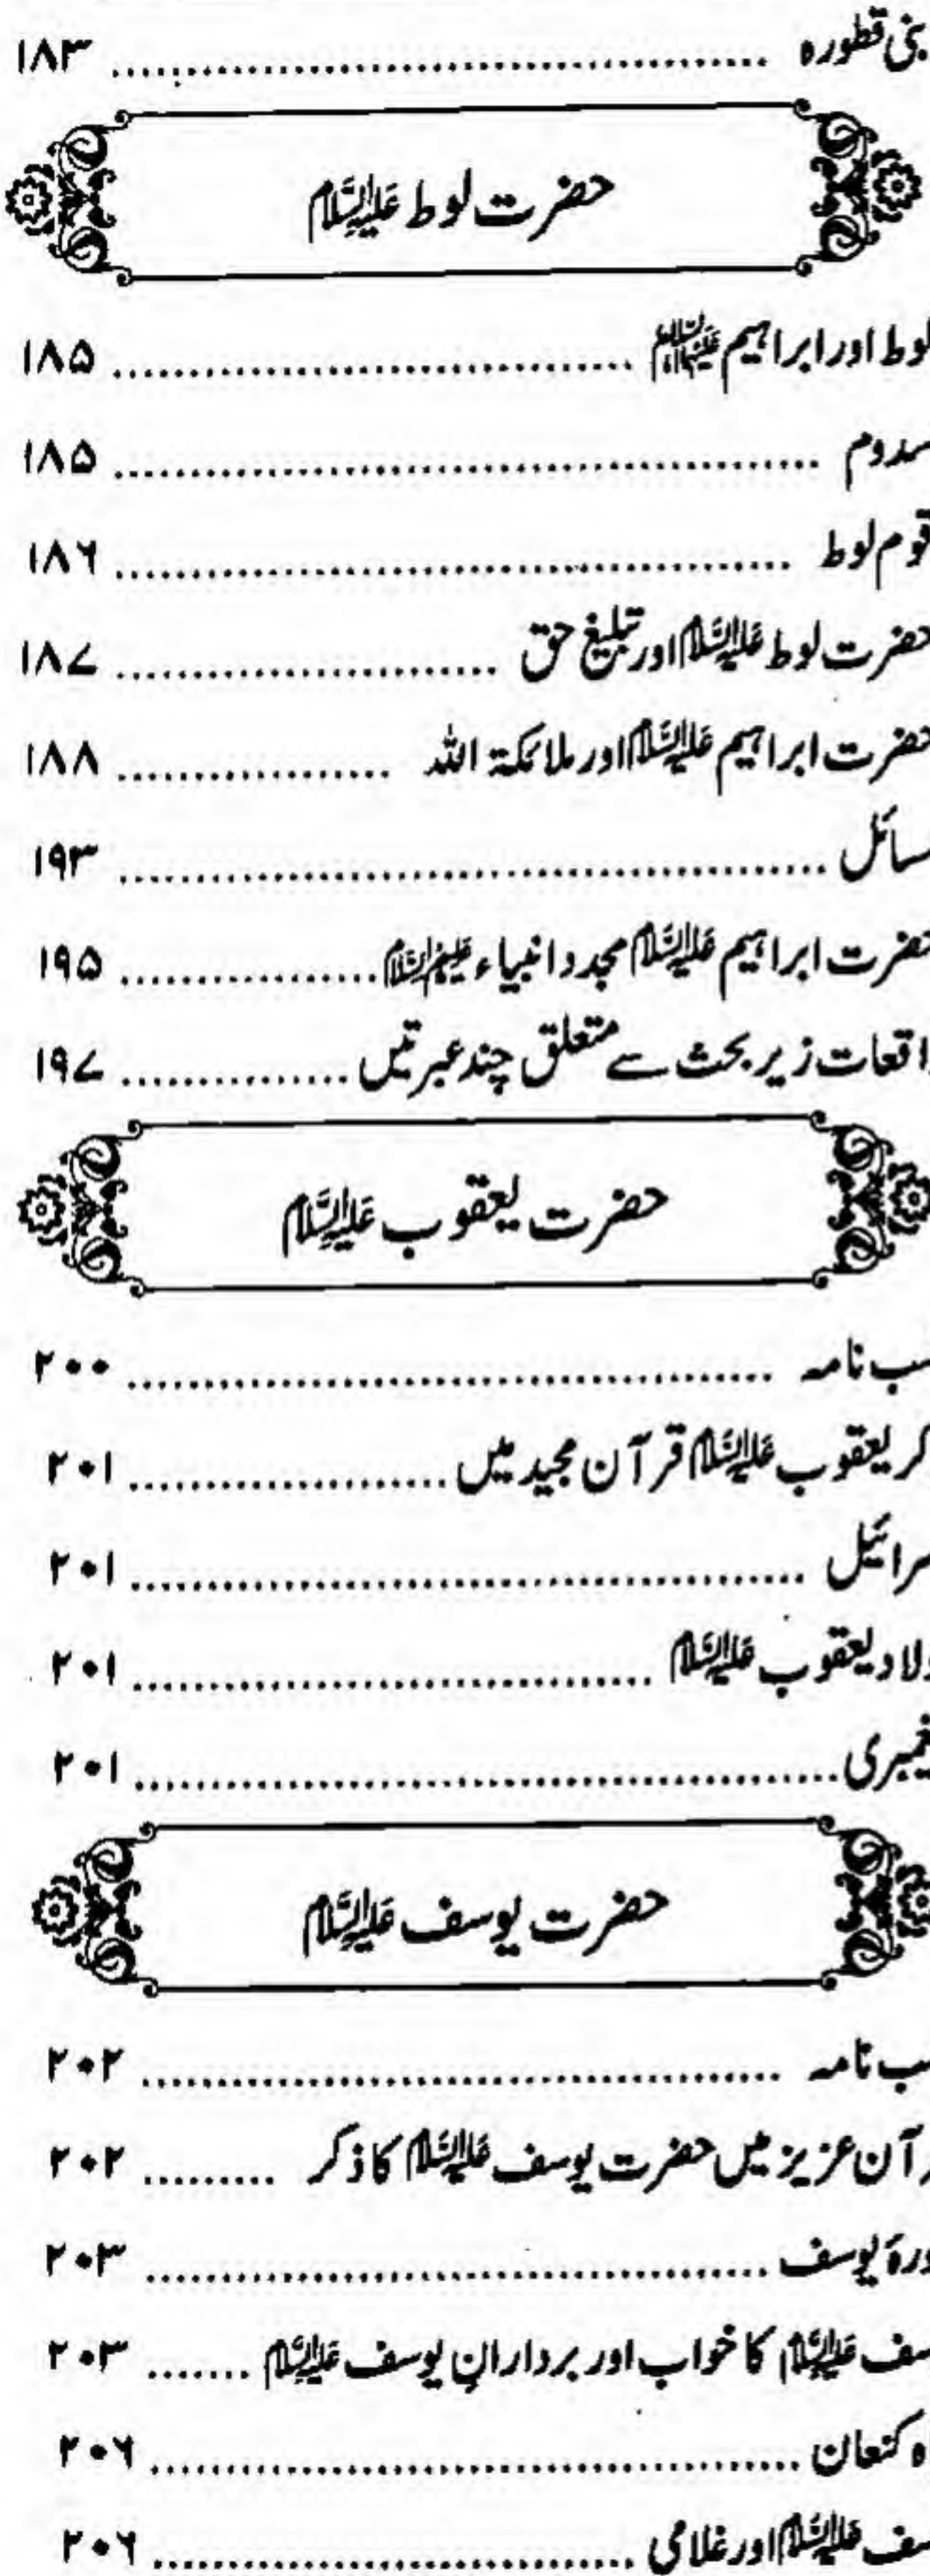 بنی قطورہ ........ ۱۸۳
حضرت لوط علیہ السلام
لوط اور ابراہیم علیہما السلام ........ ۱۸۵
سدوم ........ ۱۸۵
قوم لوط ........ ۱۸۶
حضرت لوط علیہ السلام اور تبلیغ حق ........ ۱۸۷
حضرت ابراہیم علیہ السلام اور ملائکۃ اللہ ........ ۱۸۸
سائل ........ ۱۹۳
حضرت ابراہیم علیہ السلام مجدد انبیاء علیہم السلام ........ ۱۹۵
اقعات زیر بحث سے متعلق چند عبرتیں ........ ۱۹۷
حضرت یعقوب علیہ السلام
سب نامہ ........ ۲۰۰
کر یعقوب علیہ السلام قرآن مجید میں ........ ۲۰۱
سرائیل ........ ۲۰۱
ولاد یعقوب علیہ السلام ........ ۲۰۱
غمبری ........ ۲۰۱
حضرت یوسف علیہ السلام
سب نامہ ........ ۲۰۲
رآن عزیز میں حضرت یوسف علیہ السلام کا ذکر ........ ۲۰۲
ورۃ یوسف ........ ۲۰۳
سف علیہ السلام کا خواب اور برداران یوسف علیہ السلام ........ ۲۰۳
اہ کنعان ........ ۲۰۶
سف علیہ السلام اور غلامی ........ ۲۰۶